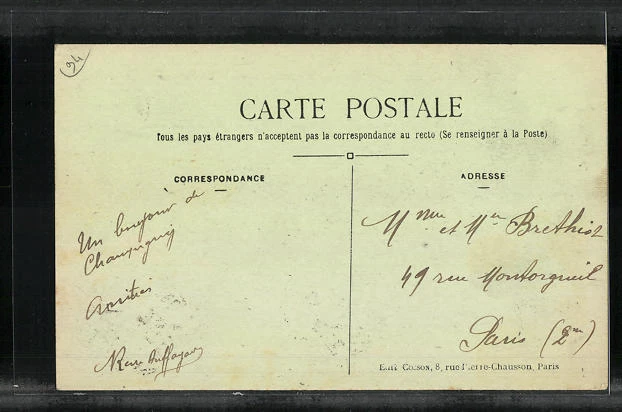 94
CARTE POSTALE
Tous les pays étrangers n'acceptent pas la correspondance au recto (Se renseigner à la Poste)
CORRESPONDANCE
ADRESSE
Un bonjour de
Champigny
Amitiés
Mme et Mr Brethiot
49 rue Montorgueil
Paris (2me)
Edit Cosson, 8, rue Pierre-Chausson, Paris